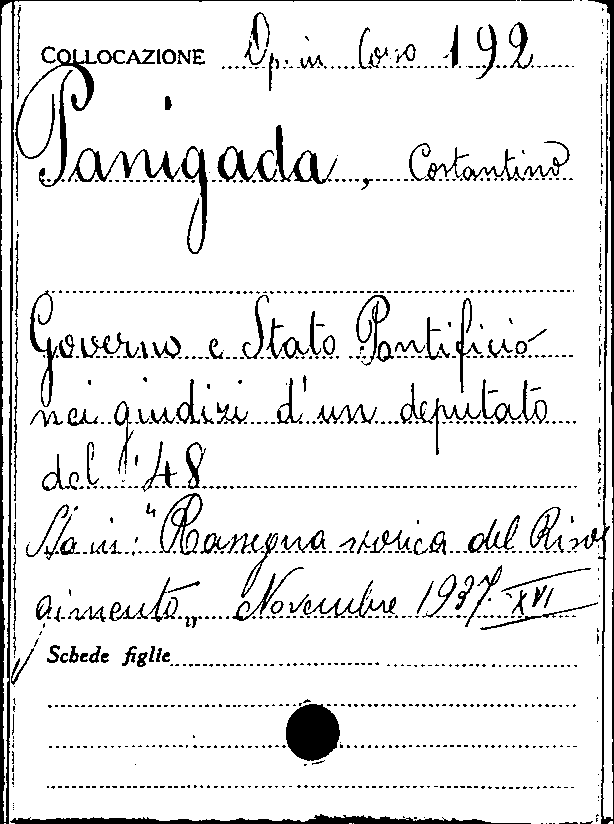 COLLOCAZIONE Op. in Coro 192
Panigada, Costantino
Governo e Stato Pontificio
nei giudizi d'un deputato
del '48
Sta in: "Rassegna storica del Risor
gimento„ Novembre 1937-XVI
Schede figlie